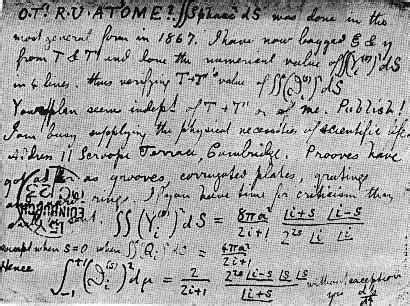 O.T'. R.U. AT 'OME? ∬Spharc² dS was done in the
most general form in 1867. I have now bagged ξ & η
from T & T' and done the numerical value of ∬(Y_i^(s))² dS
in 4 lines. thus verifying T+T''s value of ∬(ϑ_i^(s))² dS
Your plan seems indept. of T + T' or of me. Publish!
I am busy supplying the physical necessities of scientific life
address 11 Scroope Terrace, Cambridge. Prooves have
got as far as grooves, corrugated plates, grating
and rings. If you have time for criticism then
∬(Y_i^(s))² dS = 8πa²/(2i+1) |i+s |i−s / 2^(2s) |i |i
except when s=0 when ∬(Q_i)² dS = 4πa²/(2i+1)
Hence ∫_(−1)^(+1) (ϑ_i^(s))² dμ = 2/(2i+1) 2^(2s) |i−s |s |s / |i+s without exception
EDINBURGH